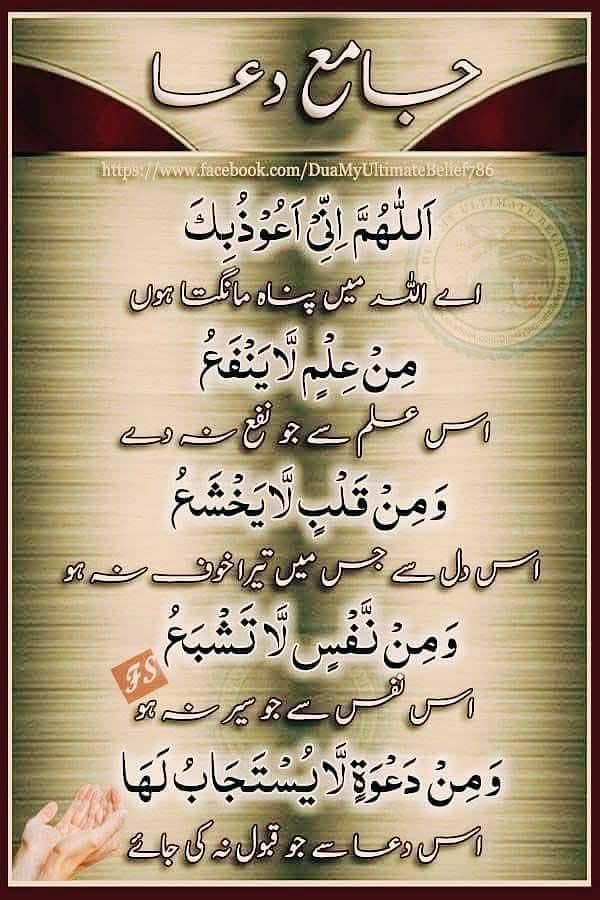 جامع دعا
https://www.facebook.com/DuaMyUltimateBelief786
اَللّٰهُمَّ اِنِّیْٓ اَعُوْذُبِكَ
اے اللہ میں پناہ مانگتا ہوں
مِنْ عِلْمٍ لَّا یَنْفَعُ
اس علم سے جو نفع نہ دے
وَمِنْ قَلْبٍ لَّا یَخْشَعُ
اس دل سے جس میں تیرا خوف نہ ہو
وَمِنْ نَّفْسٍ لَّا تَشْبَعُ
FS
اس نفس سے جو سیر نہ ہو
وَمِنْ دَعْوَةٍ لَّا یُسْتَجَابُ لَهَا
اس دعا سے جو قبول نہ کی جائے